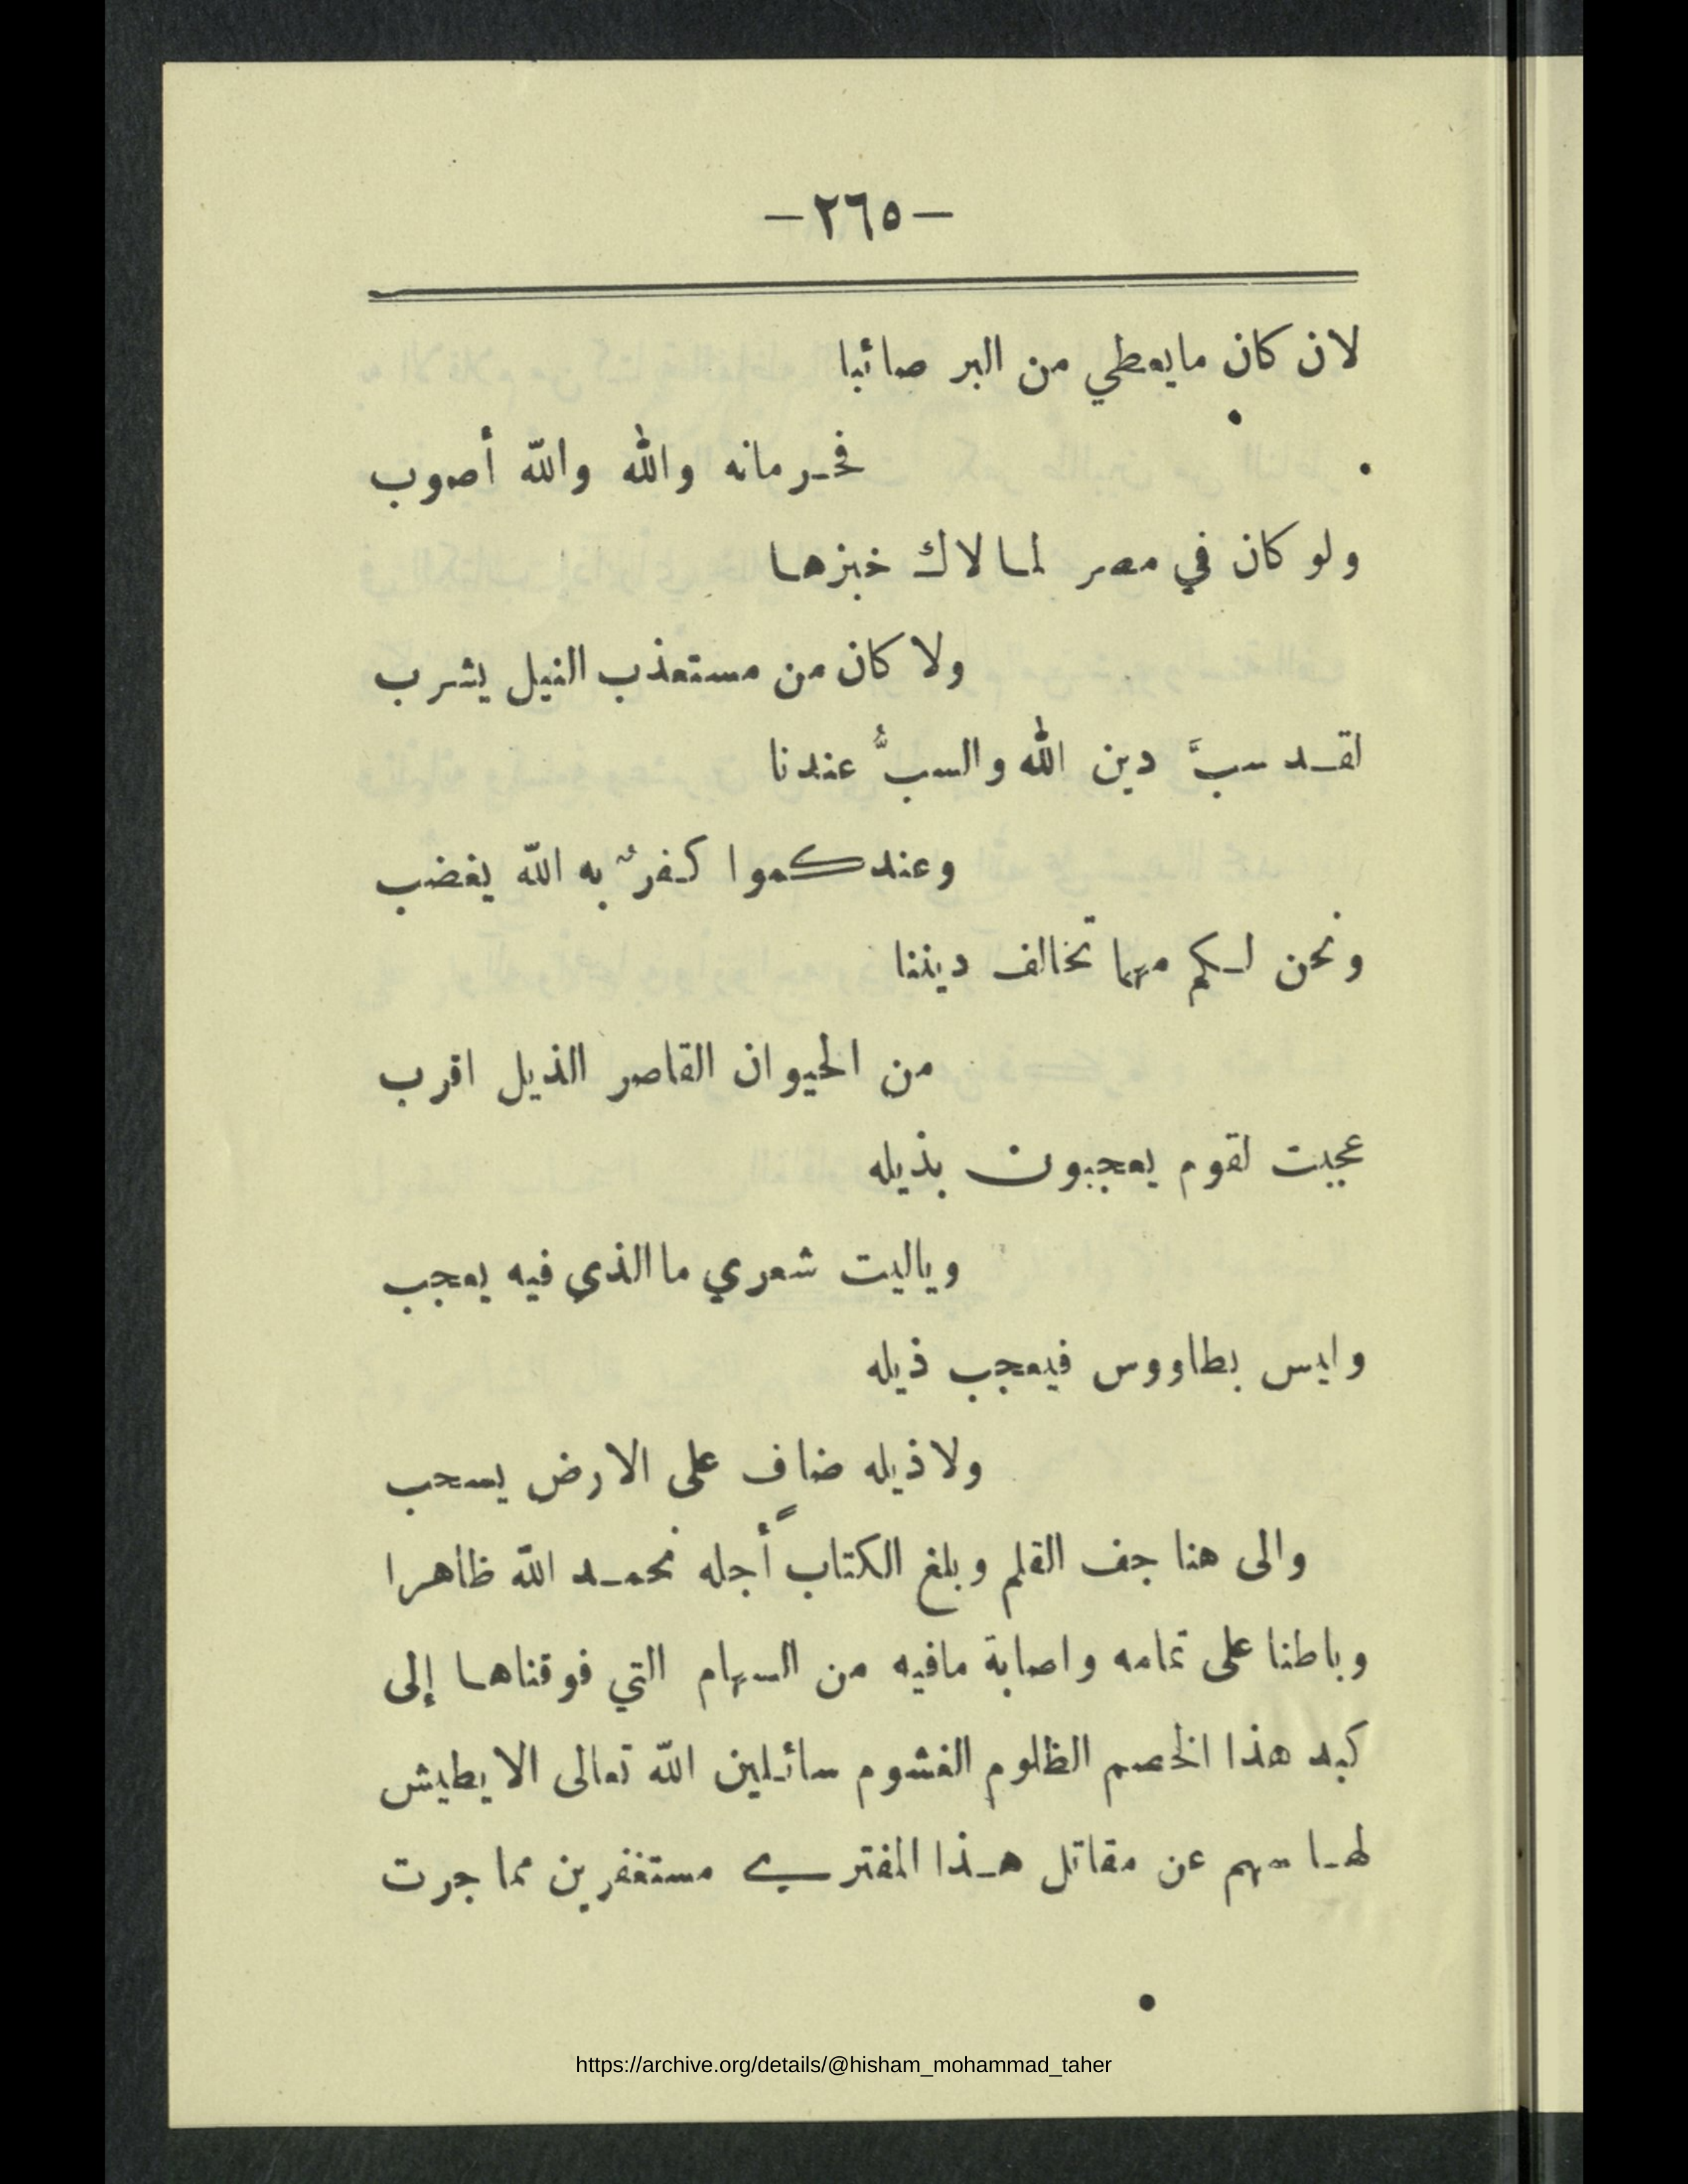 — ٢٦٥ —
لان كان مايعطي من البر صائبا
فحرمانه والله والله أصوب
ولو كان في مصر لما لاك خبزها
ولا كان من مستعذب النيل يشرب
لقد سبَّ دين الله والسبُّ عندنا
وعندكموا كفرٌ به الله يغضب
ونحن لكم مهما تخالف ديننا
من الحيوان القاصر الذيل اقرب
عجبت لقوم يعجبون بذيله
وياليت شعري ما الذي فيه يعجب
وليس بطاووس فيعجب ذيله
ولا ذيله ضافٍ على الارض يسحب
والى هنا جف القلم وبلغ الكتاب أجله نحمد الله ظاهرا
وباطنا على تمامه واصابة مافيه من السهام التي فوقناها إلى
كبد هذا الخصم الظلوم الغشوم سائلين الله تعالى الا يطيش
لها سهم عن مقاتل هذا المفتري مستغفرين مما جرت
https://archive.org/details/@hisham_mohammad_taher